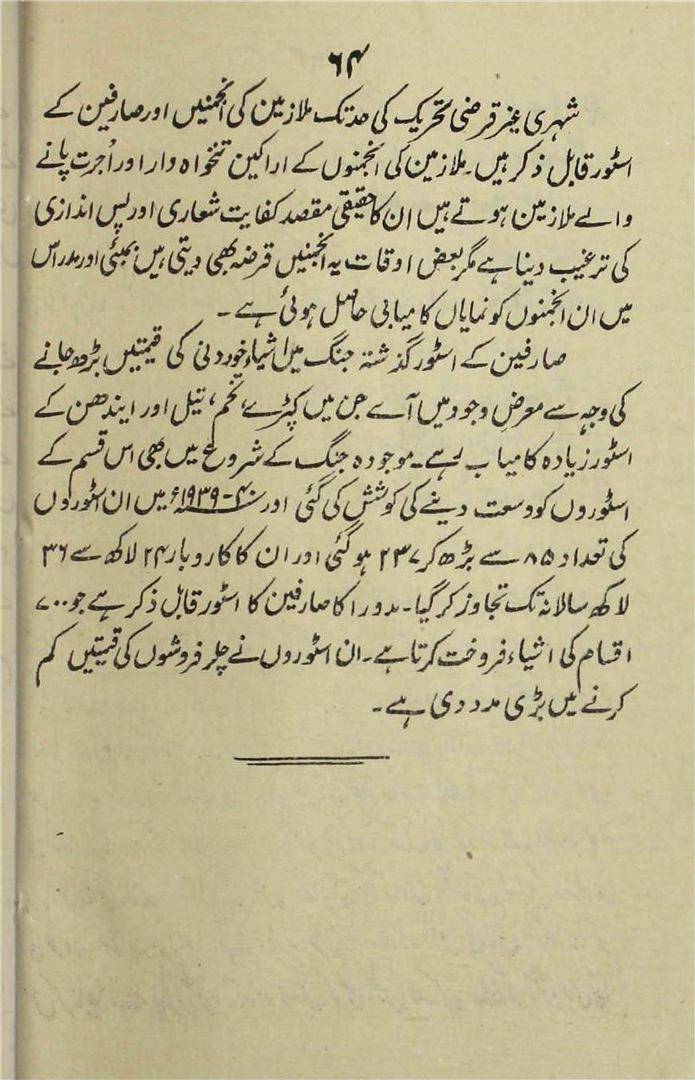 ۶۴
شہری غیر قرضی تحریک کی حد تک ملازمین کی انجمنیں اور صارفین کے
اسٹور قابل ذکر ہیں۔ ملازمین کی انجمنوں کے اراکین تنخواہ دار اور اُجرت پانے
والے ملازمین ہوتے ہیں ان کا حقیقی مقصد کفایت شعاری اور پس اندازی
کی ترغیب دینا ہے مگر بعض اوقات یہ انجمنیں قرضہ بھی دیتی ہیں بمبئی اور مدراس
میں ان انجمنوں کو نمایاں کامیابی حاصل ہوئی ہے۔
صارفین کے اسٹور گذشتہ جنگ میں اشیاء خوردنی کی قیمتیں بڑھ جانے
کی وجہ سے معرض وجود میں آے جن میں کپڑے، تخم، تیل اور ایندھن کے
اسٹور زیادہ کامیاب رہے۔ موجودہ جنگ کے شروع میں بھی اس قسم کے
اسٹوروں کو وسعت دینے کی کوشش کی گئی اور ۴۰-۱۹۳۹ء میں ان اسٹوروں
کی تعداد ۸۵ سے بڑھ کر ۲۳۷ ہو گئی اور ان کا کاروبار ۲۴ لاکھ سے ۳۶
لاکھ سالانہ تک تجاوز کر گیا۔ مدورا کا صارفین کا اسٹور قابل ذکر ہے جو ۷۰۰
اقسام کی اشیاء فروخت کرتا ہے۔ ان اسٹوروں نے چلر فروشوں کی قیمتیں کم
کرنے میں بڑی مدد دی ہے۔